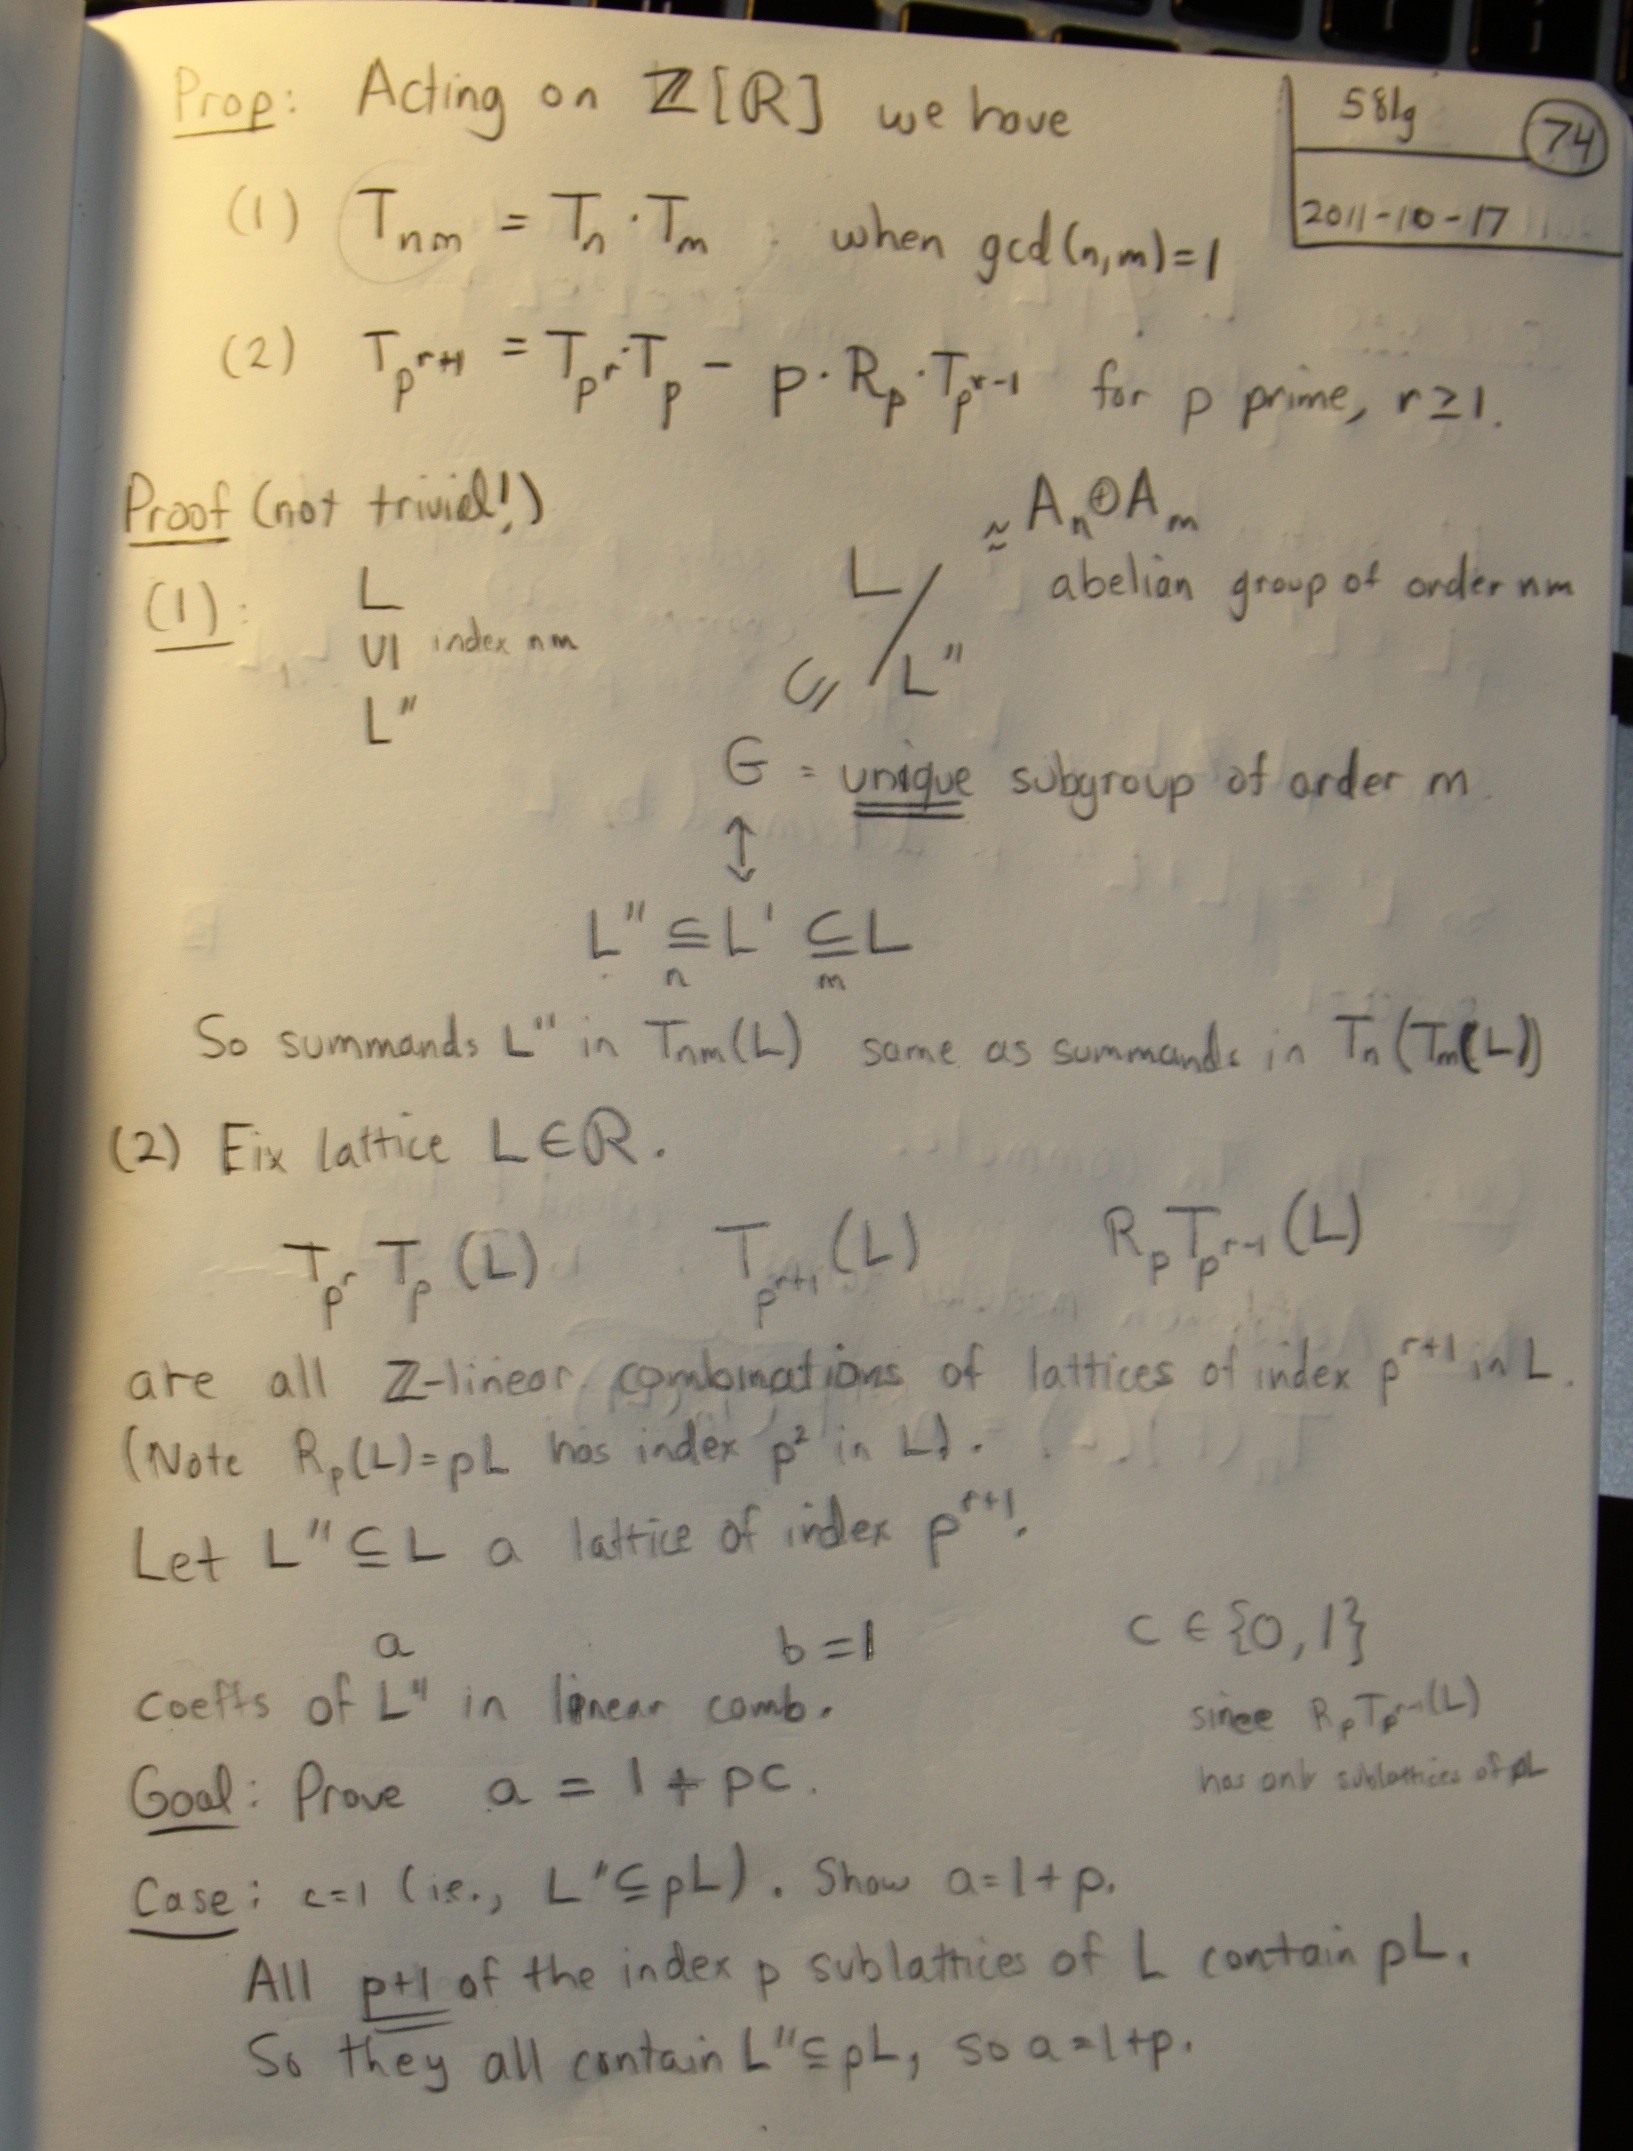 Prop: Acting on ℤ[ℛ] we have
581g 74
2011-10-17
(1) T_{nm} = T_n · T_m when gcd(n,m)=1
(2) T_{p^{r+1}} = T_{p^r} · T_p - p · R_p · T_{p^{r-1}} for p prime, r ≥ 1.
Proof (not trivial!)
(1):
L
UI index nm
L"
L / L" ≈ A_n ⊕ A_m
abelian group of order nm
⊆
G = unique subgroup of order m
↕
L" ⊆_n L' ⊆_m L
So summands L" in T_{nm}(L) same as summands in T_n(T_m(L))
(2) Fix lattice L ∈ ℛ.
T_{p^r} T_p (L) T_{p^{r+1}} (L) R_p T_{p^{r-1}} (L)
are all ℤ-linear combinations of lattices of index p^{r+1} in L.
(Note R_p(L) = pL has index p² in L).
Let L" ⊆ L a lattice of index p^{r+1}.
a b = 1 c ∈ {0, 1}
coeffs of L" in linear comb.
since R_p T_{p^{r-1}}(L)
has only sublattices of pL
Goal: Prove a = 1 + pc.
Case: c=1 (i.e., L" ⊆ pL). Show a = 1 + p.
All p+1 of the index p sublattices of L contain pL.
So they all contain L" ⊆ pL, so a = 1+p.